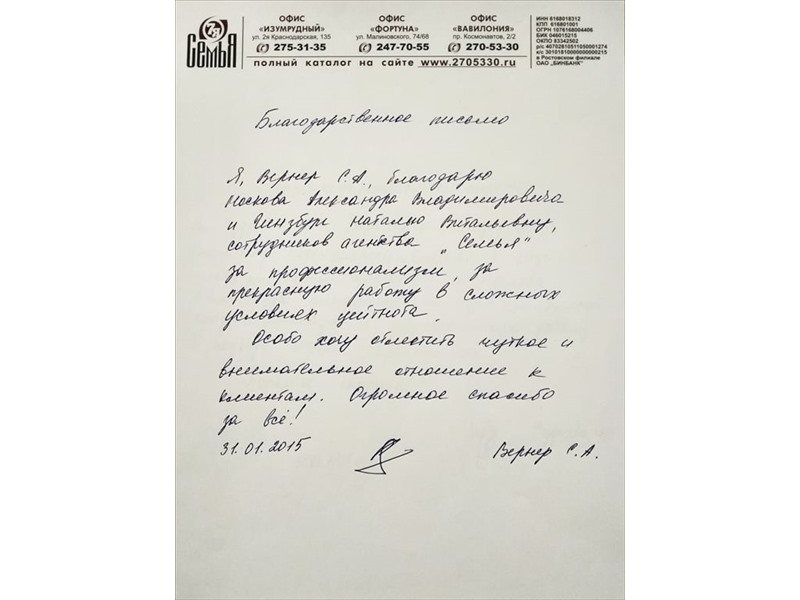 7Я
СЕМЬЯ
ОФИС
«ИЗУМРУДНЫЙ»
ул. 2я Краснодарская, 135
275-31-35
ОФИС
«ФОРТУНА»
ул. Малиновского, 74/68
247-70-55
ОФИС
«ВАВИЛОНИЯ»
пр. Космонавтов, 2/2
270-53-30
полный каталог на сайте www.2705330.ru
ИНН 6168018312
КПП 616801001
ОГРН 1076168004406
БИК 046015215
ОКПО 83342502
р/с 40702810511050001274
к/с 30101810000000000215
в Ростовском филиале
ОАО „БИНБАНК"
Благодарственное письмо
Я, Вернер С.А., благодарю
Носкова Александра Владимировича
и Гинзбург Наталью Витальевну,
сотрудников агенства „Семья"
за профессионализм, за
прекрасную работу в сложных
условиях цейтнота.
Особо хочу отметить чуткое и
внимательное отношение к
клиентам. Огромное спасибо
за всё!
31.01.2015 Вернер С.А.